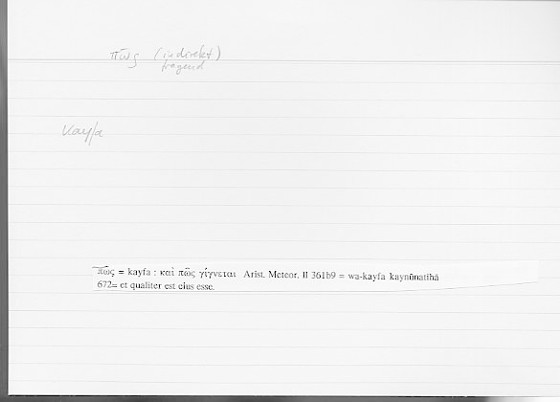 πῶς (indirekt)
fragend
kayfa
πῶς = kayfa : καὶ πῶς γίγνεται Arist. Meteor. II 361b9 = wa-kayfa kaynūnatihā
672= et qualiter est eius esse.